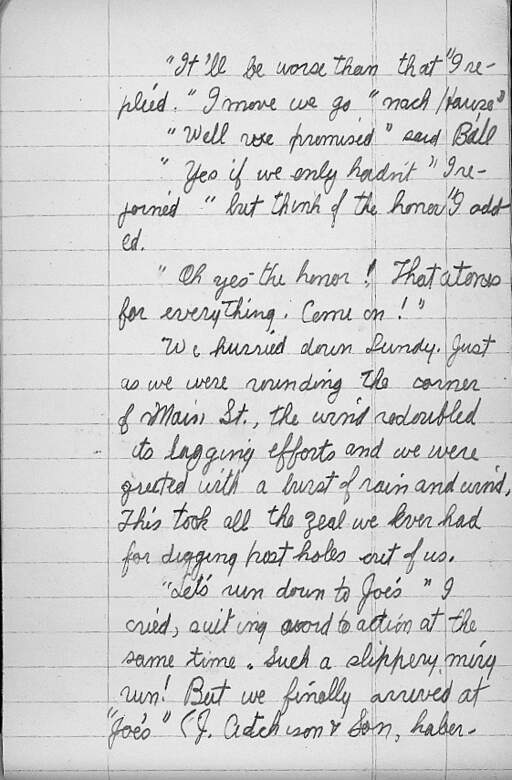 "It'll be worse than that" I re-
plied. "I move we go "nach Hause"
"Well we promised" said Bill
"Yes if we only hadn't" I re-
joined "but think of the honor" I add
ed.
"Oh yes-the honor! That atones
for everything. Come on!"
We hurried down Lundy. Just
as we were rounding the corner
of Main St., the wind redoubled
its lagging efforts and we were
greeted with a burst of rain and wind.
This took all the zeal we ever had
for digging post holes out of us.
"Let's run down to Joe's" I
cried, suiting word to action at the
same time. Such a slippery, miry
run! But we finally arrived at
"Joe's" (J. Atchison & Son, haber-